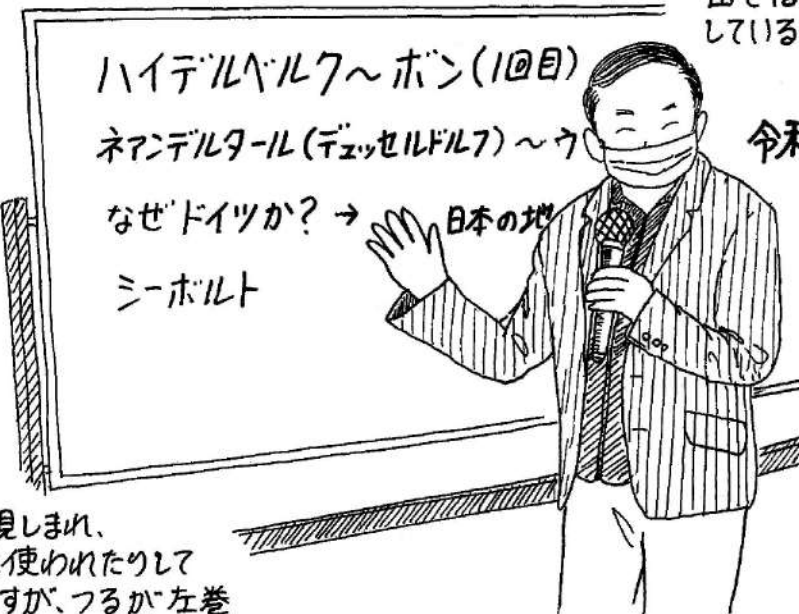 している
ハイデルベルク～ボン(1回目)
ネアンデルタール(デュッセルドルフ)～ウ
令和
なぜドイツか?→ 日本の地
シーボルト
見しまれ、
使われたりして
すが、つるが左巻